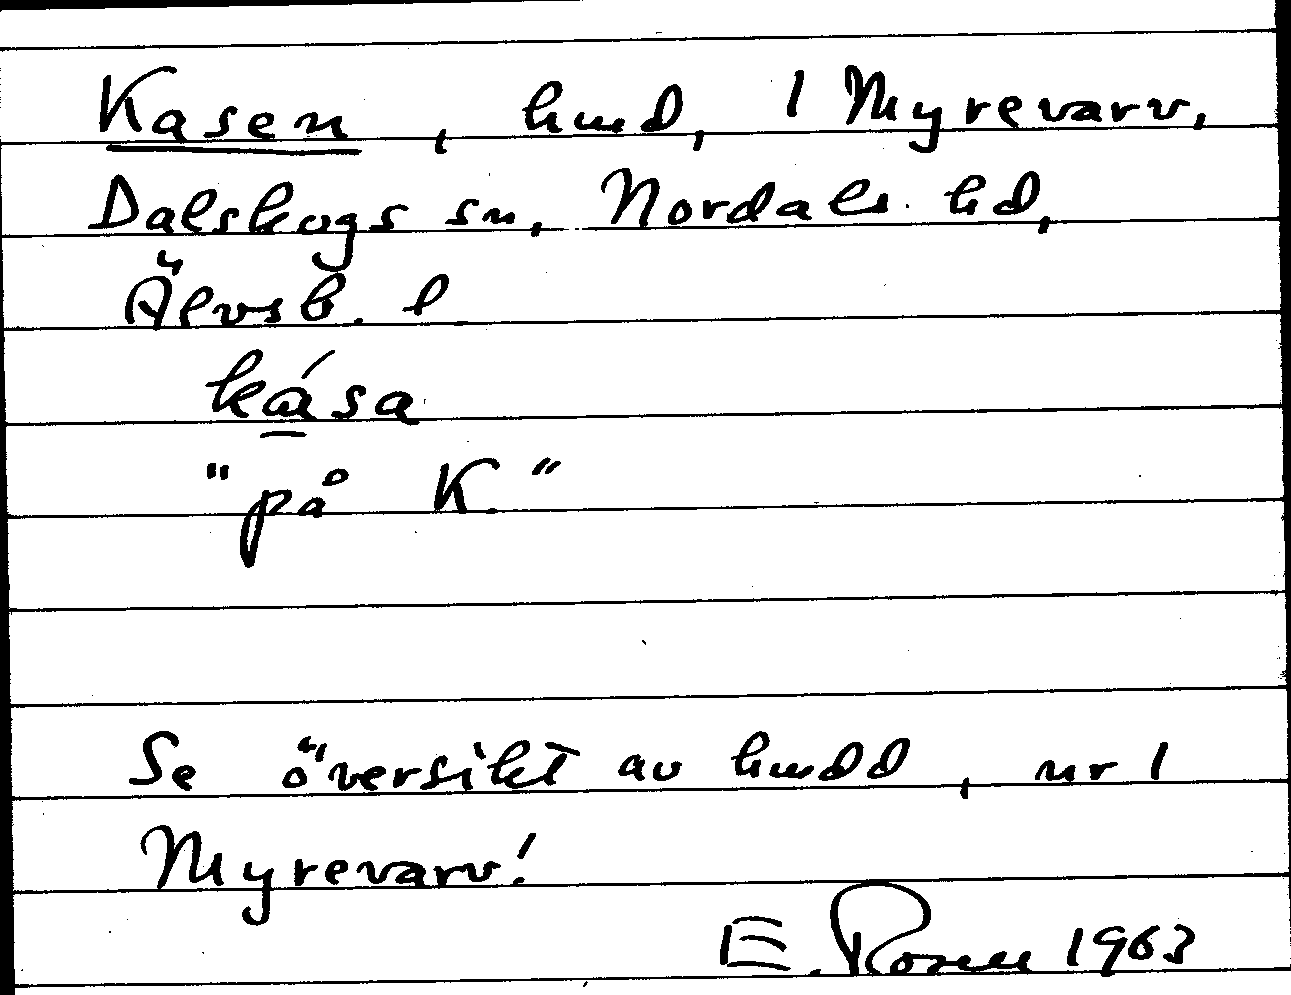 Kasen, hmd, 1 Myrevarv,
Dalskogs sn, Nordals hd,
Älvsb. l
kása
"på K."
Se översikt av hmdd, nr 1
Myrevarv!
E. Rosell 1963